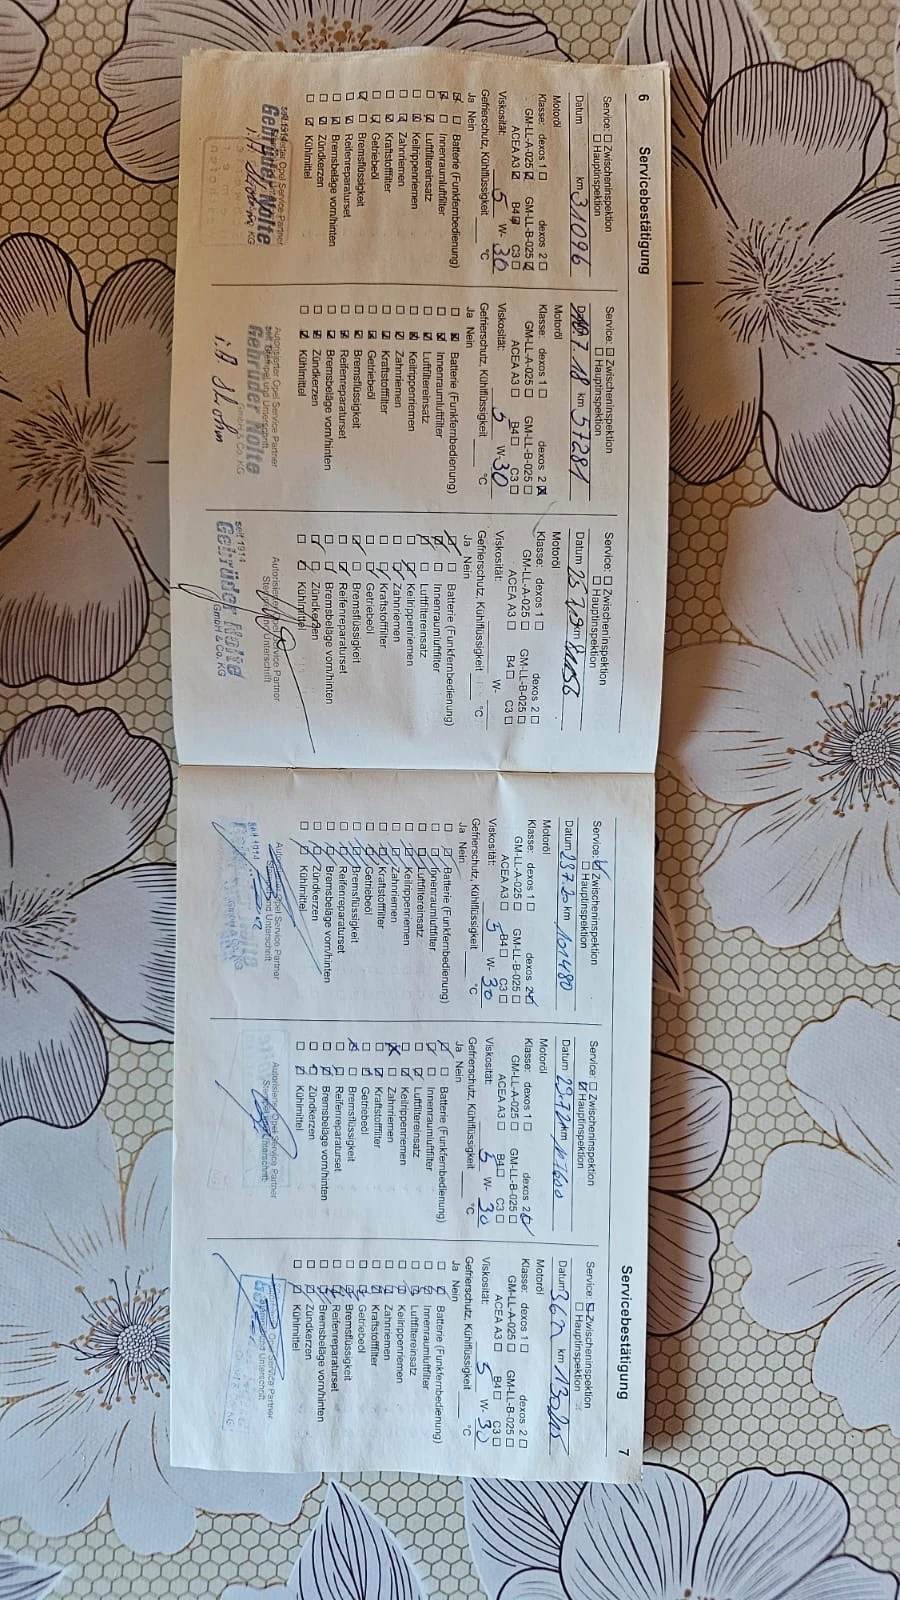 6 Servicebestätigung
Service: ☐ Zwischeninspektion
☐ Hauptinspektion
Datum km 31096
Motoröl
Klasse: dexos 1 ☐ dexos 2 ☐
GM-LL-A-025 ☑ GM-LL-B-025 ☑
ACEA A3 ☑ B4 ☑ C3 ☐
Viskosität: 5 W- 30
Gefrierschutz, Kühlflüssigkeit °C
Ja Nein
Batterie (Funkfernbedienung)
Innenraumluftfilter
Luftfiltereinsatz
Keilrippenriemen
Zahnriemen
Kraftstofffilter
Getriebeöl
Bremsflüssigkeit
Reifenreparaturset
Bremsbeläge vorn/hinten
Zündkerzen
Kühlmittel
Opel Service Partner
seit 1914
Gebrüder Nolte
KG
Service: ☐ Zwischeninspektion
☐ Hauptinspektion
7.18 km 57281
Motoröl
Klasse: dexos 1 ☐ dexos 2 ☒
GM-LL-A-025 ☐ GM-LL-B-025 ☐
ACEA A3 ☐ B4 ☐ C3 ☐
Viskosität: 5 W- 30
Gefrierschutz, Kühlflüssigkeit °C
Ja Nein
Batterie (Funkfernbedienung)
Innenraumluftfilter
Luftfiltereinsatz
Keilrippenriemen
Zahnriemen
Kraftstofffilter
Getriebeöl
Bremsflüssigkeit
Reifenreparaturset
Bremsbeläge vorn/hinten
Zündkerzen
Kühlmittel
Autorisierter Opel Service Partner
Stempel und Unterschrift
seit 1914
Gebrüder Nolte
GmbH & Co. KG
Service: ☐ Zwischeninspektion
☐ Hauptinspektion
Datum 25.7.19 km
Motoröl
Klasse: dexos 1 ☐ dexos 2 ☐
GM-LL-A-025 ☐ GM-LL-B-025 ☐
ACEA A3 ☐ B4 ☐ C3 ☐
Viskosität: W-
Gefrierschutz, Kühlflüssigkeit °C
Ja Nein
Batterie (Funkfernbedienung)
Innenraumluftfilter
Luftfiltereinsatz
Keilrippenriemen
Zahnriemen
Kraftstofffilter
Getriebeöl
Bremsflüssigkeit
Reifenreparaturset
Bremsbeläge vorn/hinten
Zündkerzen
Kühlmittel
Autorisierter Opel Service Partner
Stempel und Unterschrift
seit 1914
Gebrüder Nolte
GmbH & Co. KG
Servicebestätigung 7
Service: ☑ Zwischeninspektion
☐ Hauptinspektion
Datum 23.7.20 km 101480
Motoröl
Klasse: dexos 1 ☐ dexos 2 ☑
GM-LL-A-025 ☐ GM-LL-B-025 ☐
ACEA A3 ☐ B4 ☐ C3 ☐
Viskosität: 5 W- 30
Gefrierschutz, Kühlflüssigkeit °C
Ja Nein
Batterie (Funkfernbedienung)
Innenraumluftfilter
Luftfiltereinsatz
Keilrippenriemen
Zahnriemen
Kraftstofffilter
Getriebeöl
Bremsflüssigkeit
Reifenreparaturset
Bremsbeläge vorn/hinten
Zündkerzen
Kühlmittel
Autorisierter Opel Service Partner
Stempel und Unterschrift
seit 1914
Service: ☐ Zwischeninspektion
☑ Hauptinspektion
Datum km
Motoröl
Klasse: dexos 1 ☐ dexos 2 ☑
GM-LL-A-025 ☐ GM-LL-B-025 ☐
ACEA A3 ☐ B4 ☐ C3 ☐
Viskosität: 5 W- 30
Gefrierschutz, Kühlflüssigkeit °C
Ja Nein
Batterie (Funkfernbedienung)
Innenraumluftfilter
Luftfiltereinsatz
Keilrippenriemen
Zahnriemen
Kraftstofffilter
Getriebeöl
Bremsflüssigkeit
Reifenreparaturset
Bremsbeläge vorn/hinten
Zündkerzen
Kühlmittel
Autorisierter Opel Service Partner
Stempel und Unterschrift
Service: ☑ Zwischeninspektion
☐ Hauptinspektion
Datum km
Motoröl
Klasse: dexos 1 ☐ dexos 2 ☐
GM-LL-A-025 ☐ GM-LL-B-025 ☐
ACEA A3 ☐ B4 ☐ C3 ☐
Viskosität: 5 W- 30
Gefrierschutz, Kühlflüssigkeit °C
Ja Nein
Batterie (Funkfernbedienung)
Innenraumluftfilter
Luftfiltereinsatz
Keilrippenriemen
Zahnriemen
Kraftstofffilter
Getriebeöl
Bremsflüssigkeit
Reifenreparaturset
Bremsbeläge vorn/hinten
Zündkerzen
Kühlmittel
Opel Service Partner
Unterschrift